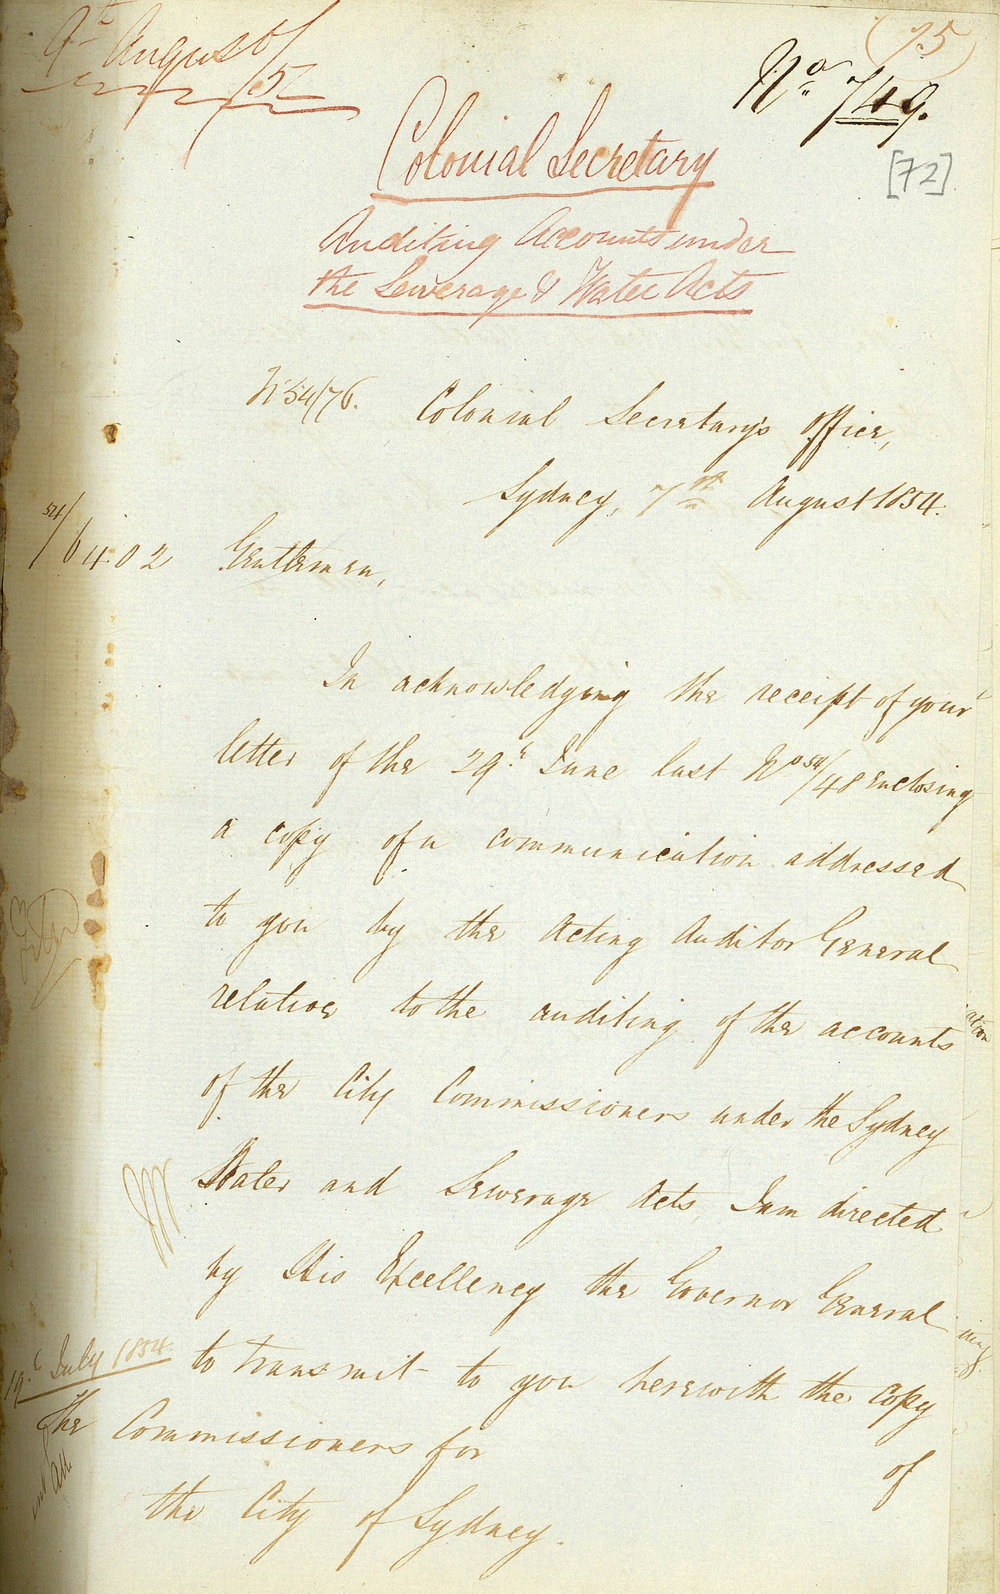 9th August /5
(75)
No. 749.
[72]
Colonial Secretary
Auditing Accounts under
the Sewerage & Water Acts
No 54/76.
Colonial Secretary's Office,
Sydney, 7th August 1854.
54/6402
Gentlemen,
In acknowledging the receipt of your
letter of the 29th June last No 54/48 enclosing
a copy of a communication addressed
to you by the Acting Auditor General
relative to the auditing of the accounts
of the City Commissioners under the Sydney
Water and Sewerage Acts, I am directed
by His Excellency the Governor General
to transmit to you herewith the copy
of
19th July 1854.
The Commissioners for
the City of Sydney.